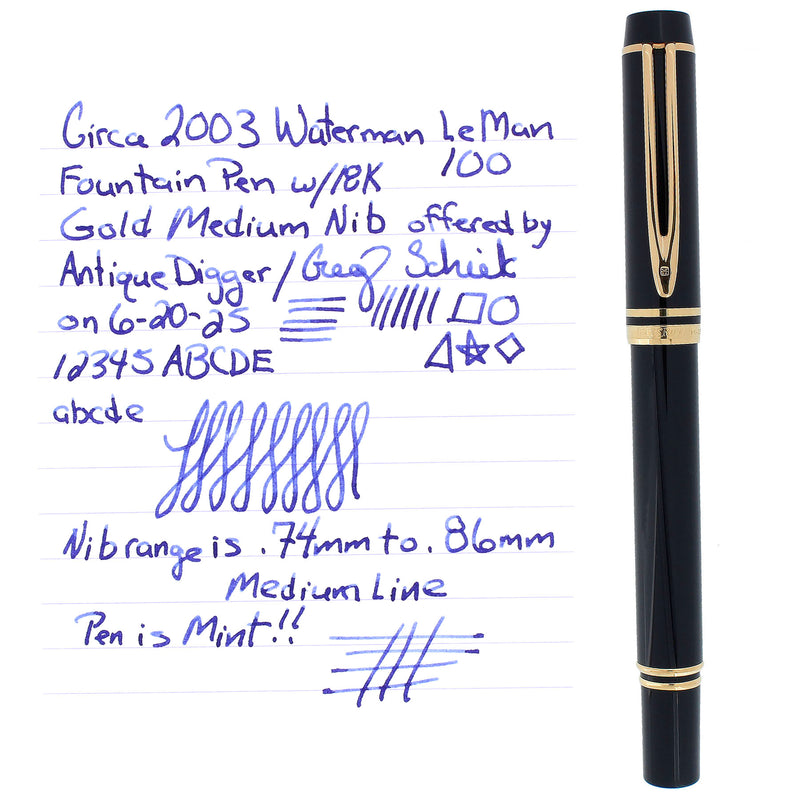 Circa 2003 Waterman LeMan
100
Fountain Pen w/18K
Gold Medium Nib offered by
Antique Digger/Greg Schiek
on 6-20-25
12345 ABCDE
abcde
Nib range is .74mm to .86mm
Medium Line
Pen is Mint!!